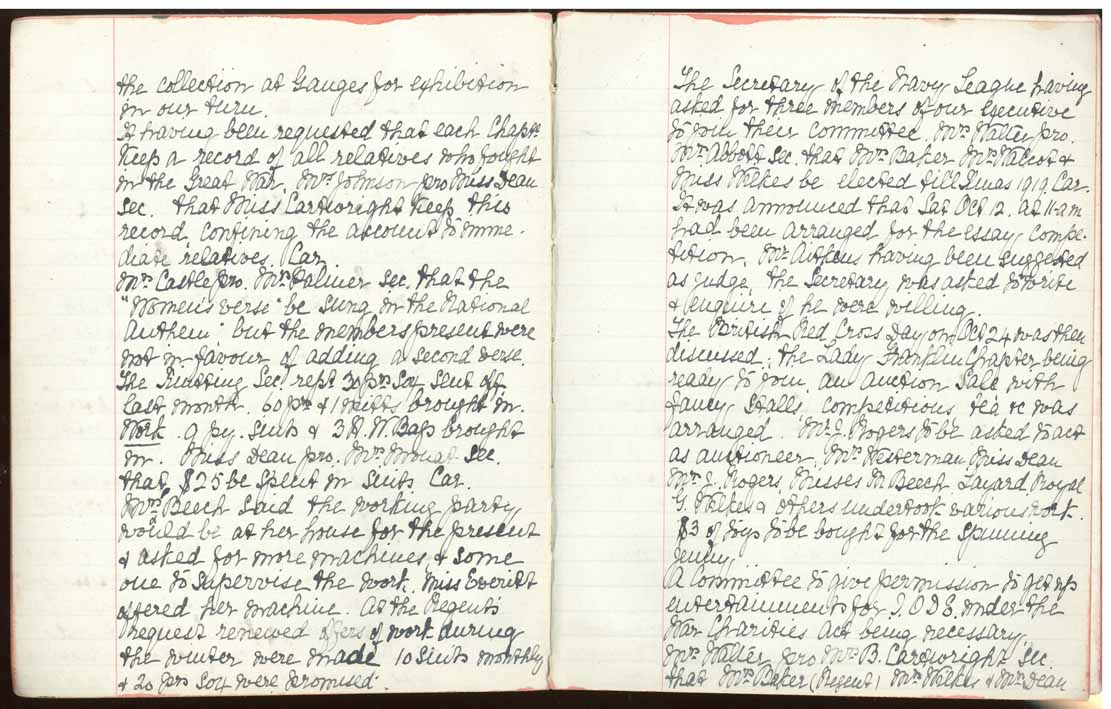 the collection at Ganges for exhibition
in our turn.
It having been requested that each Chapt.
keep a record of all relatives who fought
in the Great War. Mrs Johnson pro Miss Dean
Sec. that Miss Cartwright keep this
record, confining the account to imme-
diate relatives. Car.
Mrs Castle pro. Mrs Palmer Sec. that the
"Women's verse" be sung in the National
Anthem: but the members present were
not in favour of adding a second verse.
The Knitting Sec rept 30 prs Sox sent off
last month. 60 prs & 1 mitts brought in.
Work. 9 py. suits & 3 H.W. Bags brought
in. Miss Dean pro. Mrs Mouat Sec.
that $25 be spent in suits Car.
Mrs Beech said the working party
would be at her house for the present
& asked for more machines & some
one to supervise the work. Miss Everitt
offered her machine. At the Regent's
request renewed offers of work during
the winter were made 10 suits monthly
& 20 prs Sox were promised.
The Secretary of the Navy League having
asked for three members of our Executive
to join their committee. Mrs Walter pro.
Mrs Abbott Sec. that Mrs Baker Mrs Walcot &
Miss Wilkes be elected till Xmas 1919. Car.
It was announced that Sat Oct 12. at 11-am
had been arranged for the essay compe-
tition. Mr Aitkens having been suggested
as judge, the Secretary was asked to write
& enquire if he were willing.
The British Red Cross Day on Oct 24 was then
discussed; the Lady Franklin Chapter being
ready to join, an auction sale with
fancy stalls competitions tea &c was
arranged. Mr J. Rogers to be asked to act
as auctioneer. Mrs Waterman Miss Dean
Mrs J. Rogers, Misses M Beech Layard Royal
G. Wilkes & others undertook various work.
$3 of toys to be bought for the Spinning
Jenny.
A Committee to give permission to get up
entertainments for I.O.D.E. under the
War Charities Act being necessary,
Mrs Walter pro Mrs B. Cartwright Sec.
that Mrs Baker (Regent) Mrs Wilkes & Mrs Dean